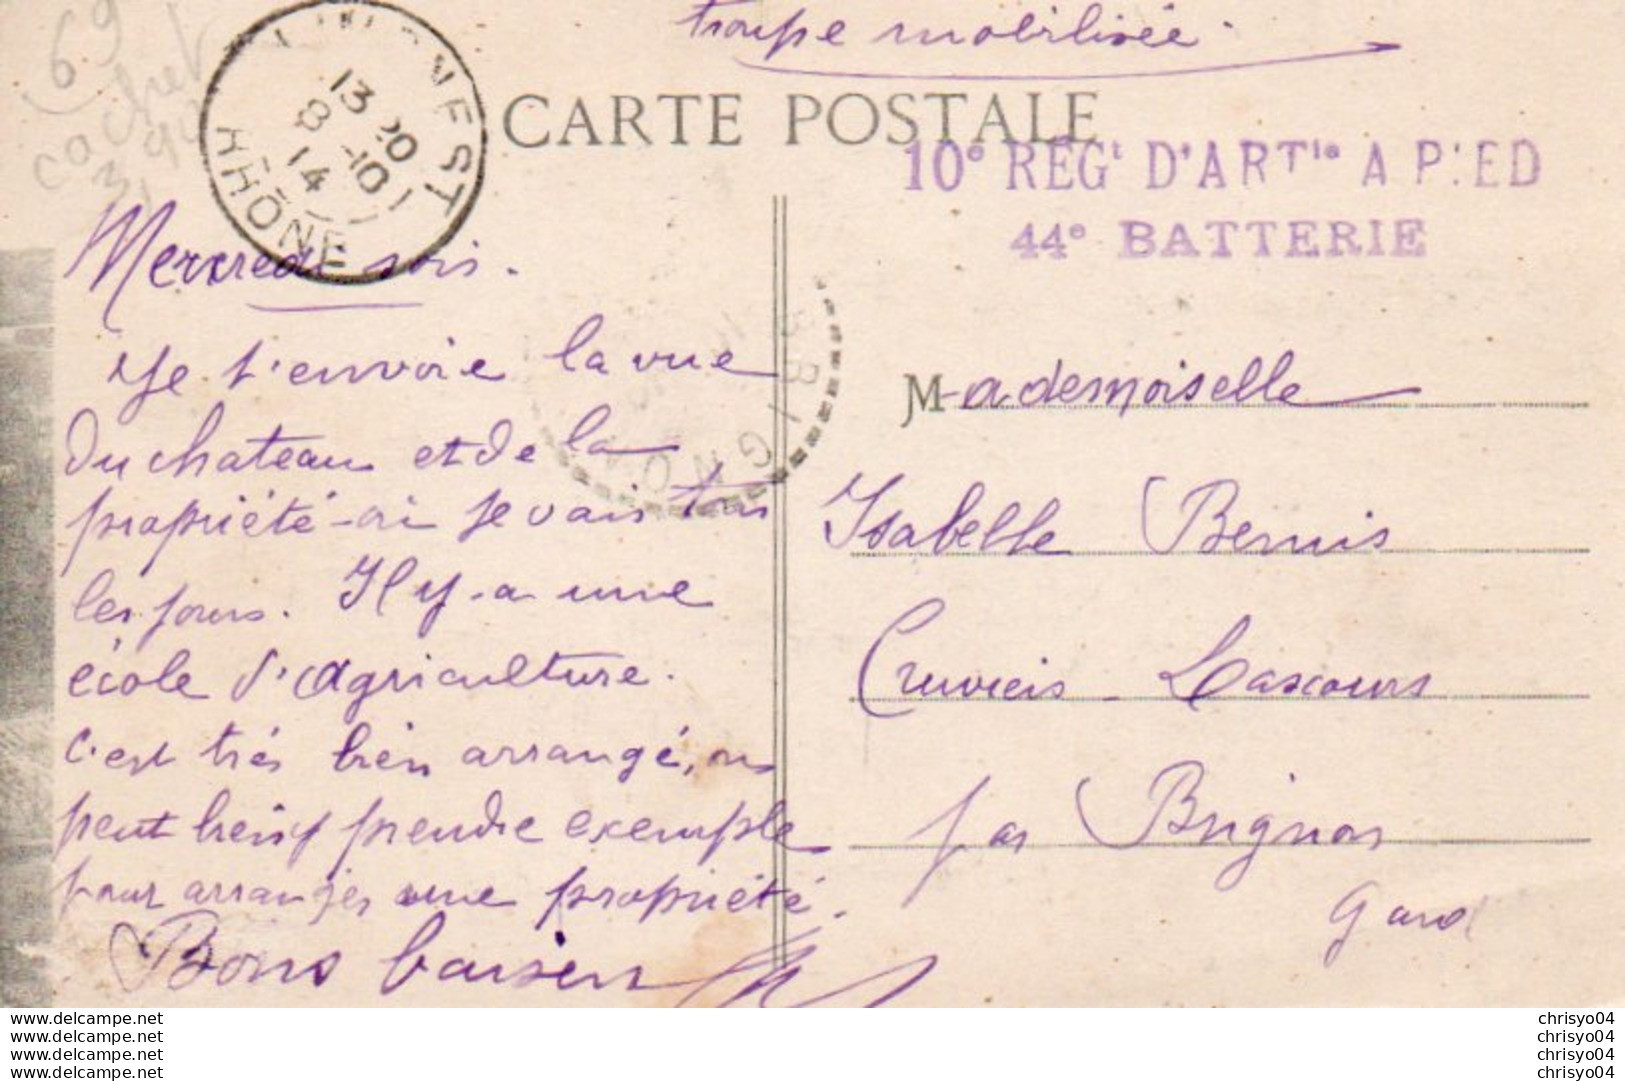 troupe mobilisée.
69
cachet
CARTE POSTALE
RHÔNE
13 20
8 -10
14
10e REGt D'ARTie A PIED
44e BATTERIE
Mercredi soir.
Je t'envoie la vue
du chateau et de la
propriété où je vais tous
les jours. Il y a une
école d'Agriculture.
C'est très bien arrangé, on
peut bien y prendre exemple
pour arranger une propriété.
Bons baisers
BRIGNON
Mademoiselle
Isabelle Bernis
Cruviers-Lascours
par Brignon
Gard
www.delcampe.net
www.delcampe.net
www.delcampe.net
www.delcampe.net
chrisyo04
chrisyo04
chrisyo04
chrisyo04